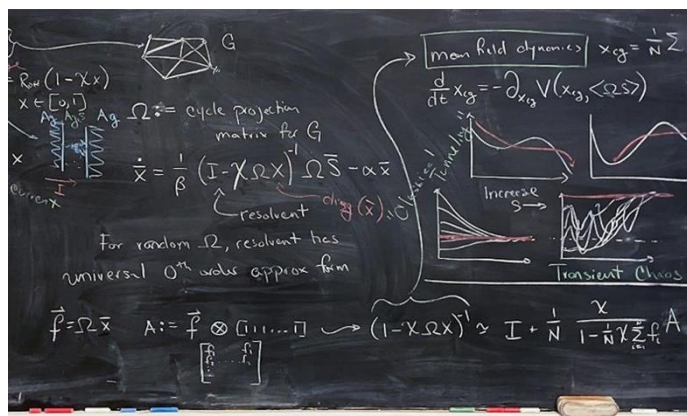 G
= R_off (1-χx)
x ∈ [0,1]
Ag Ag₂S Ag
x
I
Current
Ω := cycle projection
matrix for G
ẋ = 1/β (I-χΩX)⁻¹ ΩS̄ - αx̄
resolvent
diag(x̄)
For random Ω, resolvent has
universal 0ᵗʰ order approx form
f⃗ = Ωx̄
A := f⃗ ⊗ [1 1 .... 1]
(1-χΩX)⁻¹ ≃ I + 1/N χ/(1-1/N χ Σ fᵢ) A
mean field dynamics
x_cg = 1/N Σ
d/dt x_cg = -∂_{x_cg} V(x_cg, <ΩS>)
Tunneling
Increase
S →
Transient Chaos